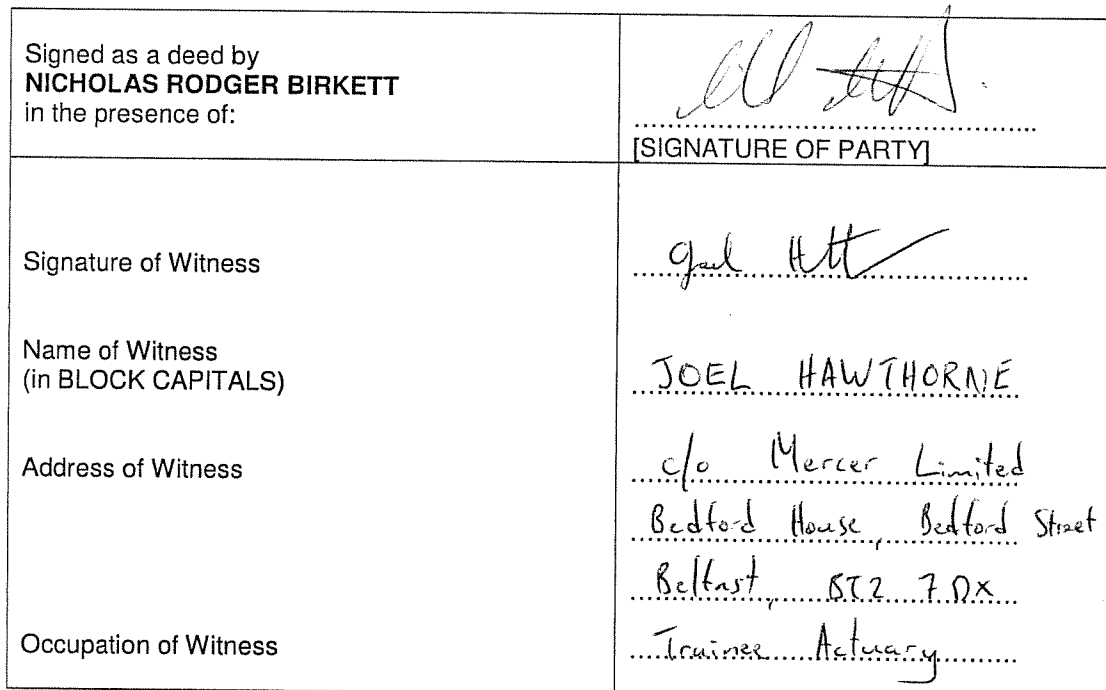 Signed as a deed by
NICHOLAS RODGER BIRKETT
in the presence of:
[SIGNATURE OF PARTY]
Signature of Witness
Name of Witness
(in BLOCK CAPITALS)
JOEL HAWTHORNE
Address of Witness
c/o Mercer Limited
Bedford House, Bedford Street
Belfast, BT2 7DX
Occupation of Witness
Trainee Actuary